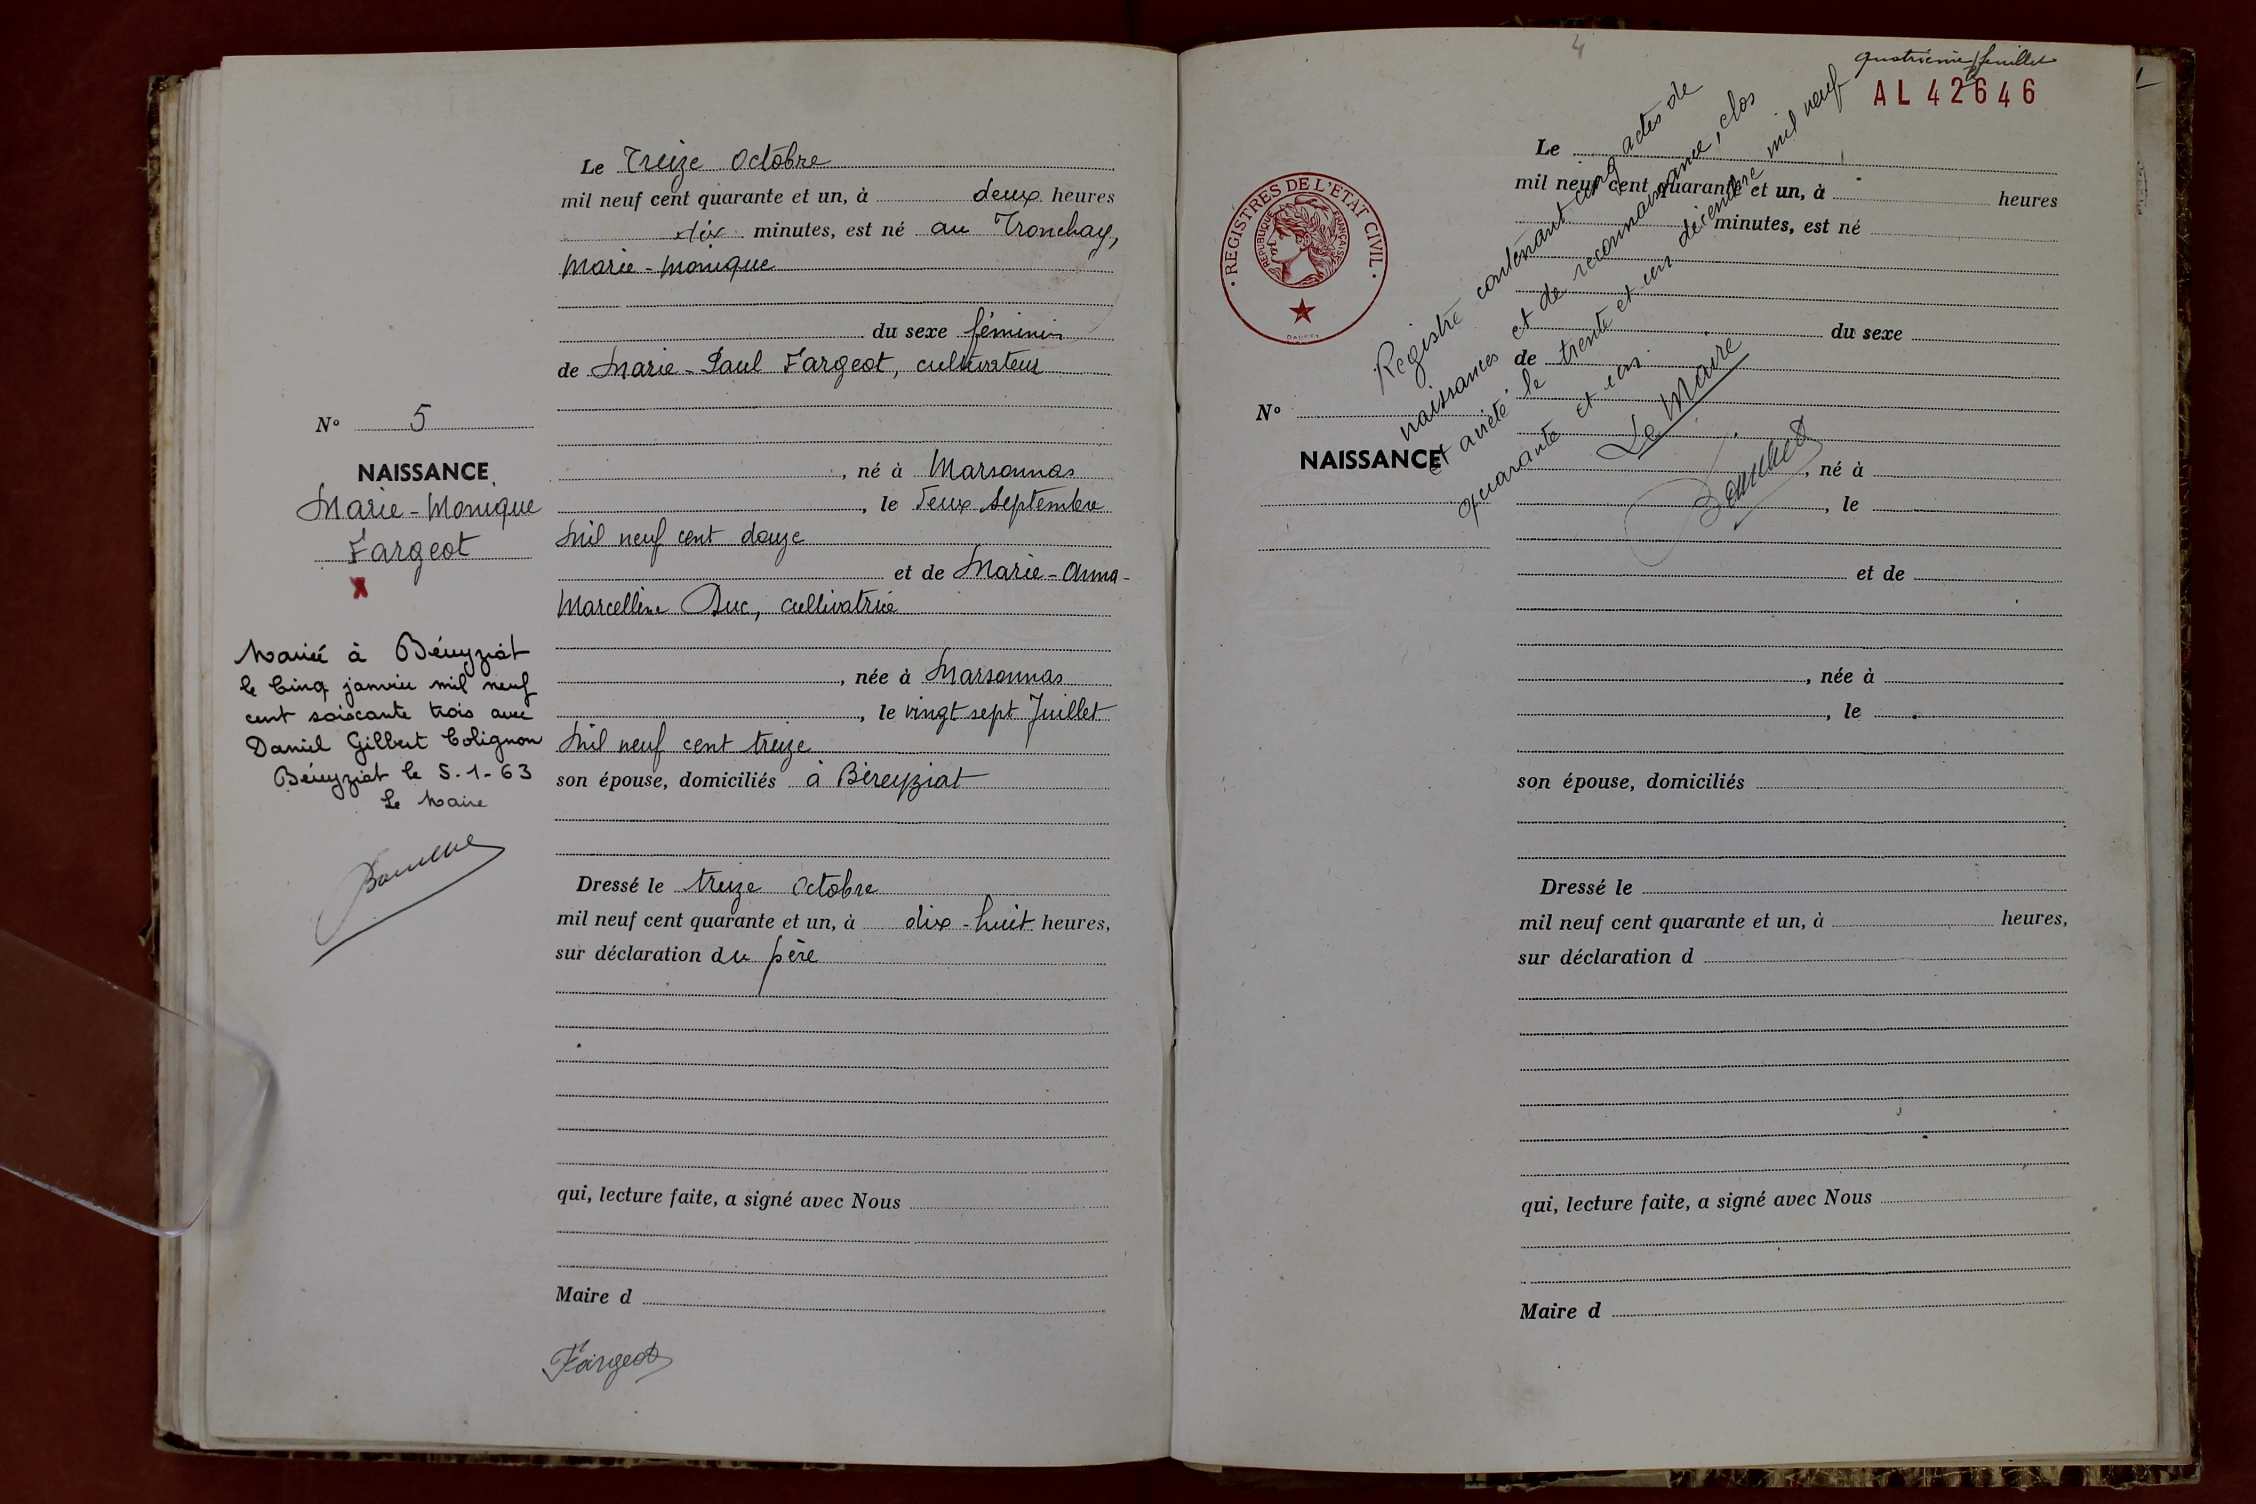 Le Treize Octobre
mil neuf cent quarante et un, à deux heures
dix minutes, est né au Tronchay,
Marie-Monique
du sexe féminin
de Marie-Paul Fargeot, cultivateur
N° 5
NAISSANCE
Marie-Monique
Fargeot
x
, né à Marsonnas
, le deux Septembre
Mil neuf cent douze
et de Marie-Anna-
Marcelline Buc, cultivatrice
, née à Marsonnas
, le vingt sept Juillet
Mil neuf cent treize
son épouse, domiciliés à Béreyziat
Mariée à Béreyziat
le Cinq janvier mil neuf
cent soixante trois avec
Daniel Gilbert Colignon
Béreyziat le 5-1-63
Le Maire
Dressé le treize Octobre
mil neuf cent quarante et un, à dix-huit heures,
sur déclaration du père
qui, lecture faite, a signé avec Nous
Maire d
Fargeot
4
quatrième feuillet
AL 42646
REGISTRES DE L'ÉTAT CIVIL
RÉPUBLIQUE FRANÇAISE
Registre contenant cinq actes de
naissances et de reconnaissance, clos
et arrêté le trente et un décembre mil neuf
quarante et un.
Le Maire
Le
mil neuf cent quarante et un, à heures
minutes, est né
du sexe
de
N°
NAISSANCE
, né à
, le
et de
, née à
, le
son épouse, domiciliés
Dressé le
mil neuf cent quarante et un, à heures,
sur déclaration d
qui, lecture faite, a signé avec Nous
Maire d